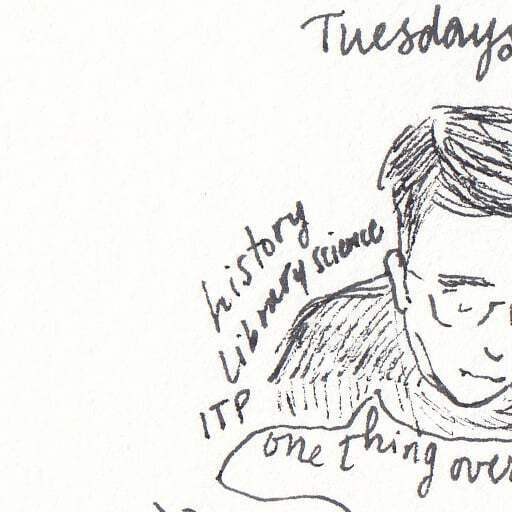 Tuesdays
history
Library science
ITP
one thing over